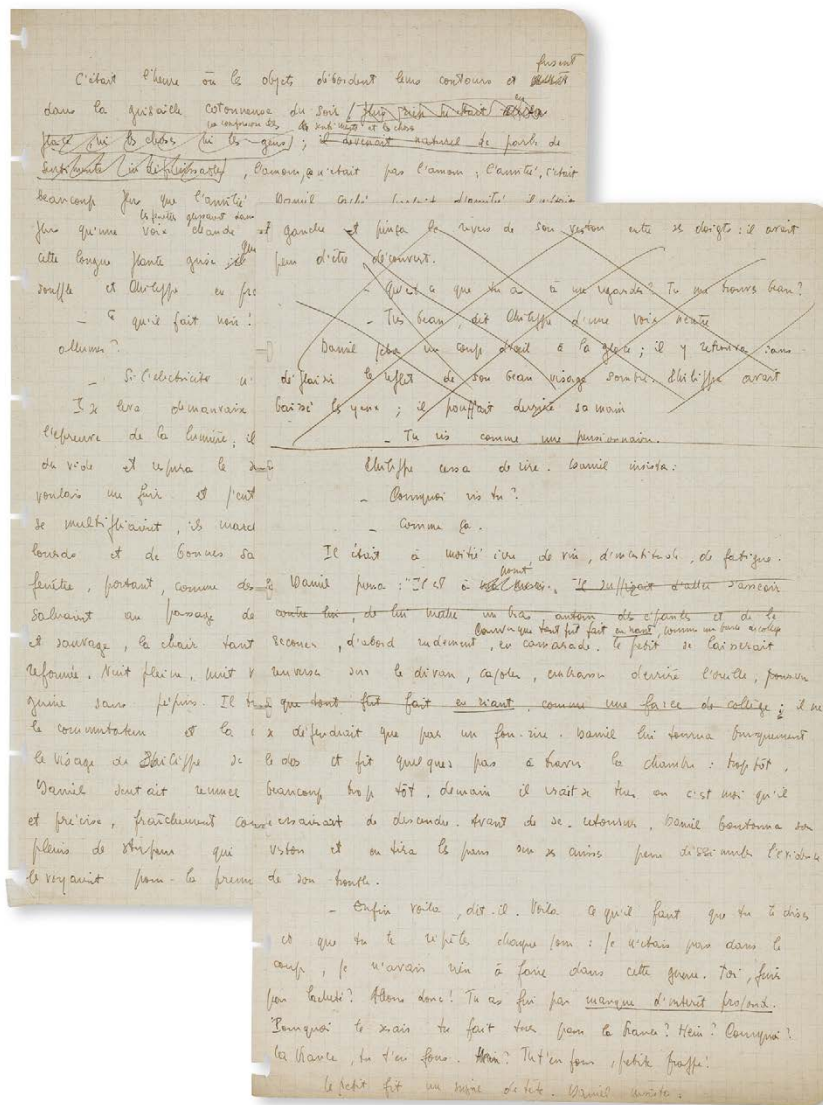 fusent
C'était l'heure où les objets débordent leurs contours et
dans la grisaille cotonneuse du soir
la confusion des sentiments et des choses
ni les choses ni les gens ; il devenait naturel de parler de
sentiments , l'amour, ce n'était pas l'amour ; l'amitié, c'était
beaucoup plus que l'amitié. Daniel caché parlait d'amitié, il n'était
les fenêtres glissaient dans
plus qu'une voix chaude et
cette longue plante grise ; il
souffle et Philippe en pro
— Ce qu'il fait noir !
allumes ?
— Si l'électricité n'
Il se leva de mauvaise
l'épreuve de la lumière ; il
du vide et respira le
voulais me fuir . et j'ent
se multipliaient , ils march
lourds et de bonnes sa
fenêtre , portant , comme des
saluaient au passage de
et sauvage , la chair tant
refermée . Nuit pleine , nuit v
guine sans pépins . Il t
le commutateur et la
le visage de Philippe se
Daniel sentait
et précise , fraîchement co
pleins de stupeur qui
le voyaient pour la prem
gauche et pinça le revers de son veston entre ses doigts : il avait
peur d'être découvert .
— Qu'est ce que tu as à me regarder ? Tu me trouves beau ?
— Très beau , dit Philippe d'une voix neutre
Daniel jeta un coup d'œil à la glace ; il y retrouva sans
déplaisir le reflet de son beau visage sombre . Philippe avait
baissé les yeux ; il pouffait derrière sa main
— Tu ris comme une pensionnaire .
Philippe cessa de rire . Daniel insista :
— Pourquoi ris tu ?
— Comme ça .
Il était à moitié ivre de vin , d'incertitude , de fatigue .
point
Daniel pensa : "Il est à . Il suffirait d'aller s'asseoir
contre lui , de lui mettre un bras autour des épaules et de le
Pourvu que tout fût fait en riant , comme une farce de collège
secouer , d'abord rudement , en camarade . le petit se laisserait
renverser sur le divan , cajoler , embrasser derrière l'oreille , pourvu
que tout fût fait en riant , comme une farce de collège ; il ne
se défendrait que par un fou-rire . Daniel lui tourna brusquement
le dos et fit quelques pas à travers la chambre : trop tôt ,
beaucoup trop tôt , demain il irait se tuer ou c'est moi qu'il
essaierait de descendre . Avant de se retourner , Daniel boutonna son
veston et en tira les pans sur ses cuisses pour dissimuler l'évidence
de son trouble .
— Enfin voilà , dit-il . Voilà ce qu'il faut que tu te dises
et que tu te répètes chaque jour : je n'étais pas dans le
coup , je n'avais rien à faire dans cette guerre . Toi , fuir
par lâcheté ? Allons donc ! Tu as fui par manque d'intérêt profond .
Pourquoi te serais tu fait tuer pour la France ? Hein ? Pourquoi ?
la France , tu t'en fous . Hein ? Tu t'en fous , petite frappe !
Le petit fit un signe de tête . Daniel insista .